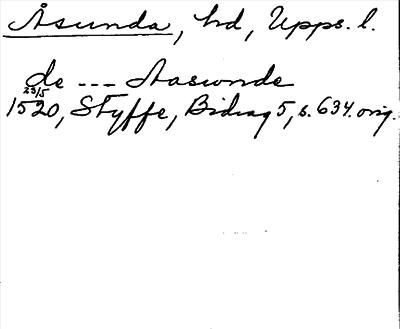 Åsunda, hd, Upps. l.
de --- Aasunde
23/5
1520, Styffe, Bidrag 5, s. 634. orig.